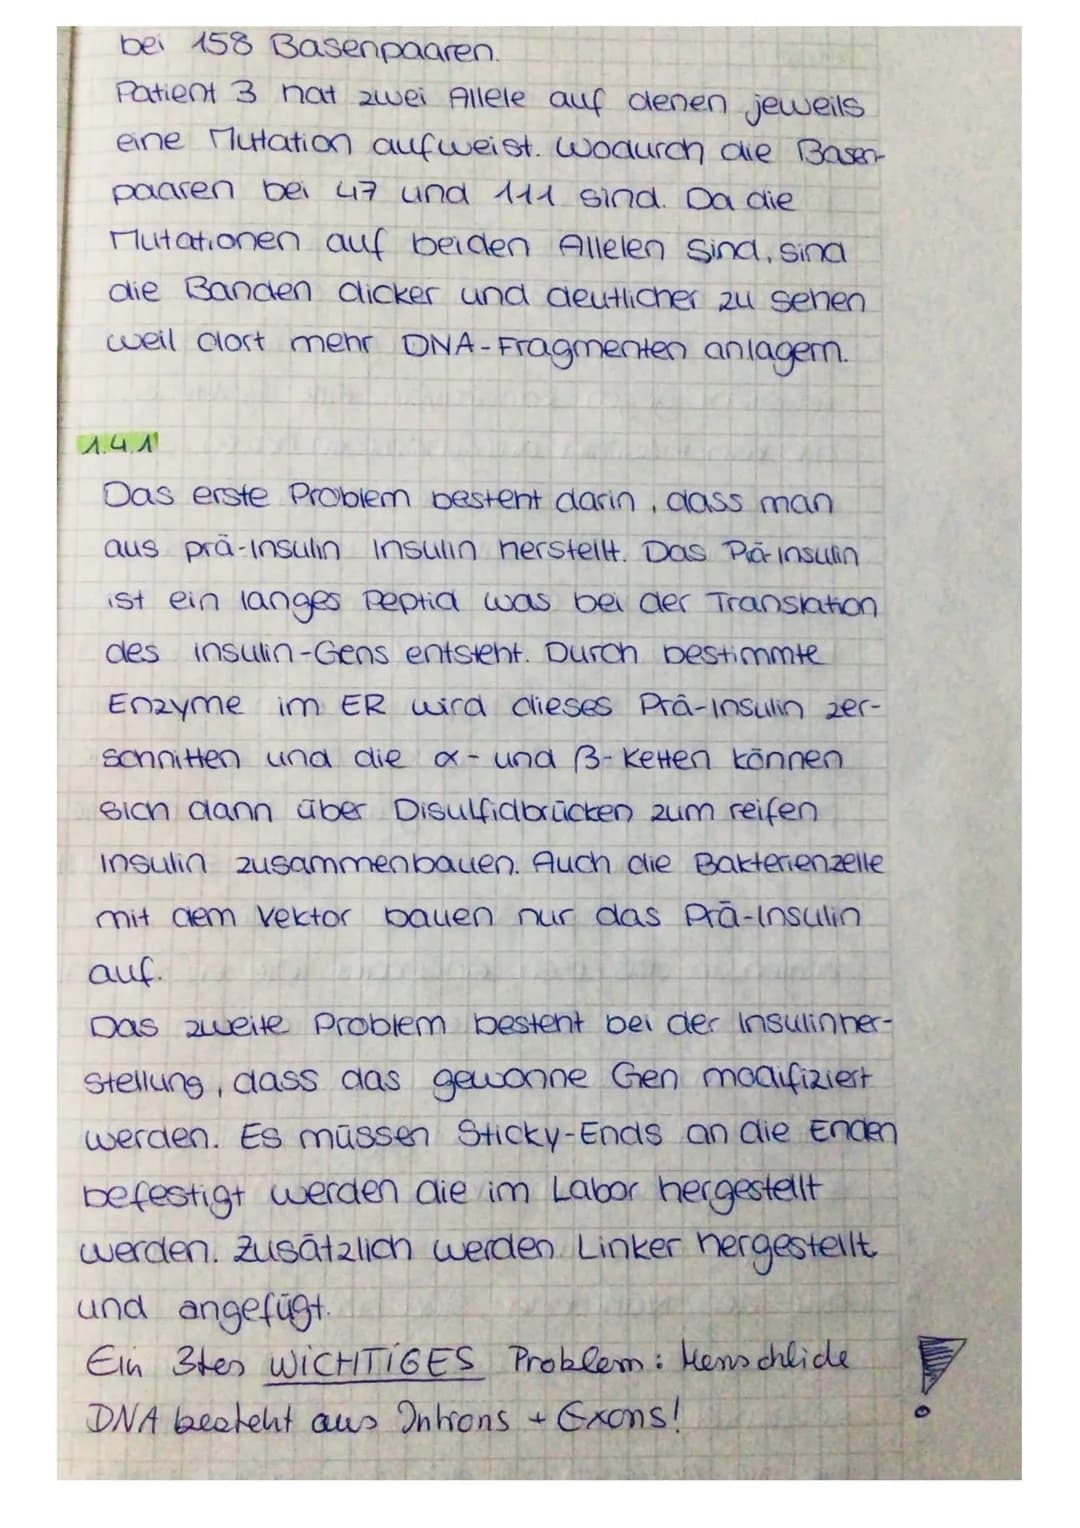 bei 158 Basenpaaren.
Patient 3 hat zwei Allele auf denen jeweils
eine Mutation aufweist. Wodurch die Basen-
paaren bei 47 und 111 sind. Da die
Mutationen auf beiden Allelen sind, sind
die Banden dicker und deutlicher zu sehen
weil dort mehr DNA-Fragmenten anlagern.
1.4.1
Das erste Problem besteht darin, dass man
aus prä-Insulin Insulin herstellt. Das Prä-Insulin
ist ein langes Peptid was bei der Translation
des Insulin-Gens entsteht. Durch bestimmte
Enzyme im ER wird dieses Prä-Insulin zer-
schnitten und die α- und β-Ketten können
sich dann über Disulfidbrücken zum reifen
Insulin zusammenbauen. Auch die Bakterienzelle
mit dem Vektor bauen nur das Prä-Insulin
auf.
Das zweite Problem besteht bei der Insulinher-
stellung, dass das gewonne Gen modifiziert
werden. Es müssen Sticky-Ends an die Enden
befestigt werden die im Labor hergestellt
werden. Zusätzlich werden Linker hergestellt
und angefügt.
Ein 3tes WICHTIGES Problem: Menschliche
DNA besteht aus Introns + Exons!
!